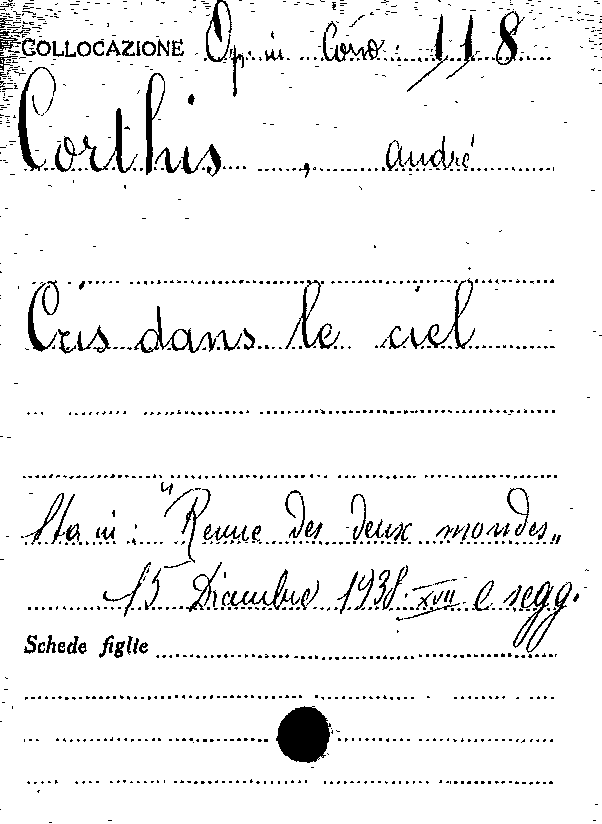 COLLOCAZIONE Op. in Corso: 118
Corthis, André
Cris dans le ciel
Sta in: "Revue des deux mondes„
15 Dicembre 1938. XVII e segg.
Schede figlie